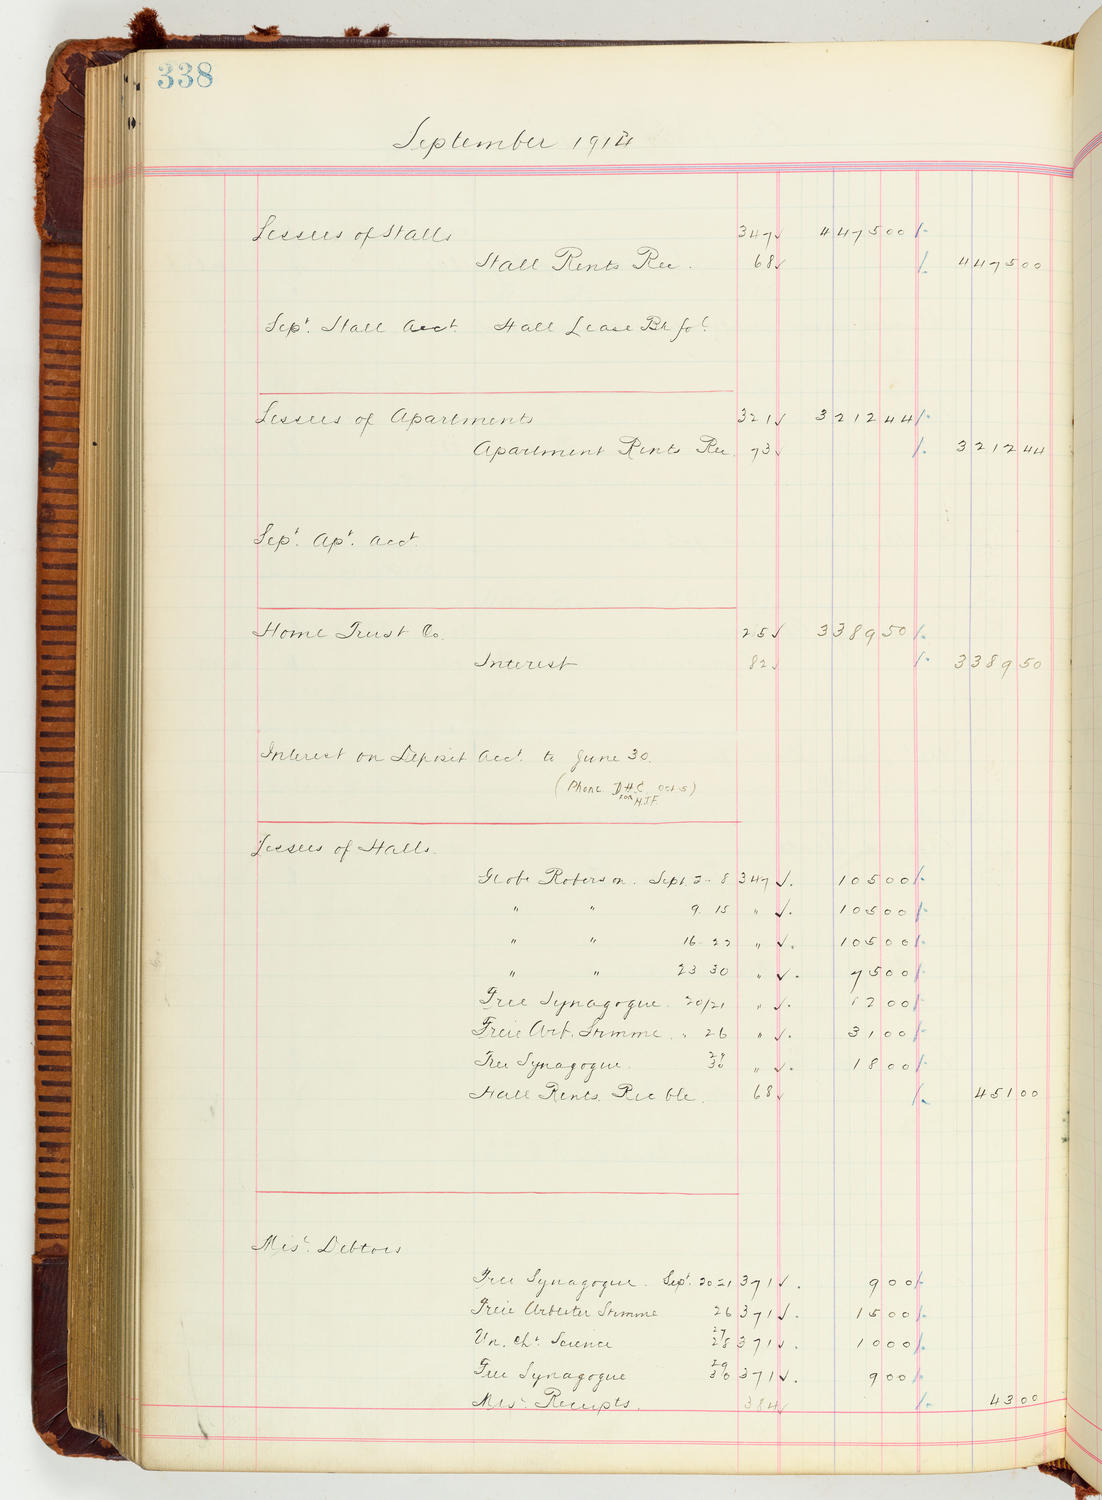 338
September 1914
Lessees of Halls 347 ✓ 4475 00
Hall Rents Rec. 68 ✓ 4475 00
Sept. Hall Acct. Hall Lease Bk fol.
Lessees of Apartments 321 ✓ 3212 44
Apartment Rents Rec. 73 ✓ 3212 44
Sept. Apt. Acct.
Home Trust Co. 25 ✓ 3389 50
Interest 82 ✓ 3389 50
Interest on Deposit Acct. to June 30.
(Phone D.H.C. Oct 5)
for H.J.F.
Lessees of Halls.
Globe Roberson. Sept 2-8 347 ✓ 105 00
" " 9 15 " ✓ 105 00
" " 16-22 " ✓ 105 00
" " 23 30 " ✓ 75 00
Free Synagogue. 20/21 " ✓ 12 00
Freie Arb. Stimme. " 26 " ✓ 31 00
Free Synagogue. 29 30 " ✓ 18 00
Hall Rents Rec ble. 68 ✓ 451 00
Misc. Debtors
Free Synagogue. Sept. 20 21 371 ✓ 9 00
Freie Arbeiter Stimme 26 371 ✓ 15 00
Un. Chr. Science 27 28 371 ✓ 10 00
Free Synagogue 29 30 371 ✓ 9 00
Misc. Receipts. 384 ✓ 43 00